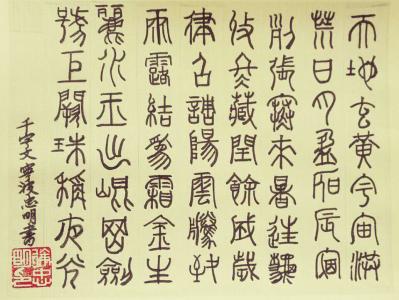 天地玄黃宇宙洪
荒日月盈昃辰宿
列張寒來暑往秋
收冬藏閏餘成歲
律呂調陽雲騰致
雨露結爲霜金生
麗水玉出崑岡劍
號巨闕珠稱夜光
千字文寧波忠明書